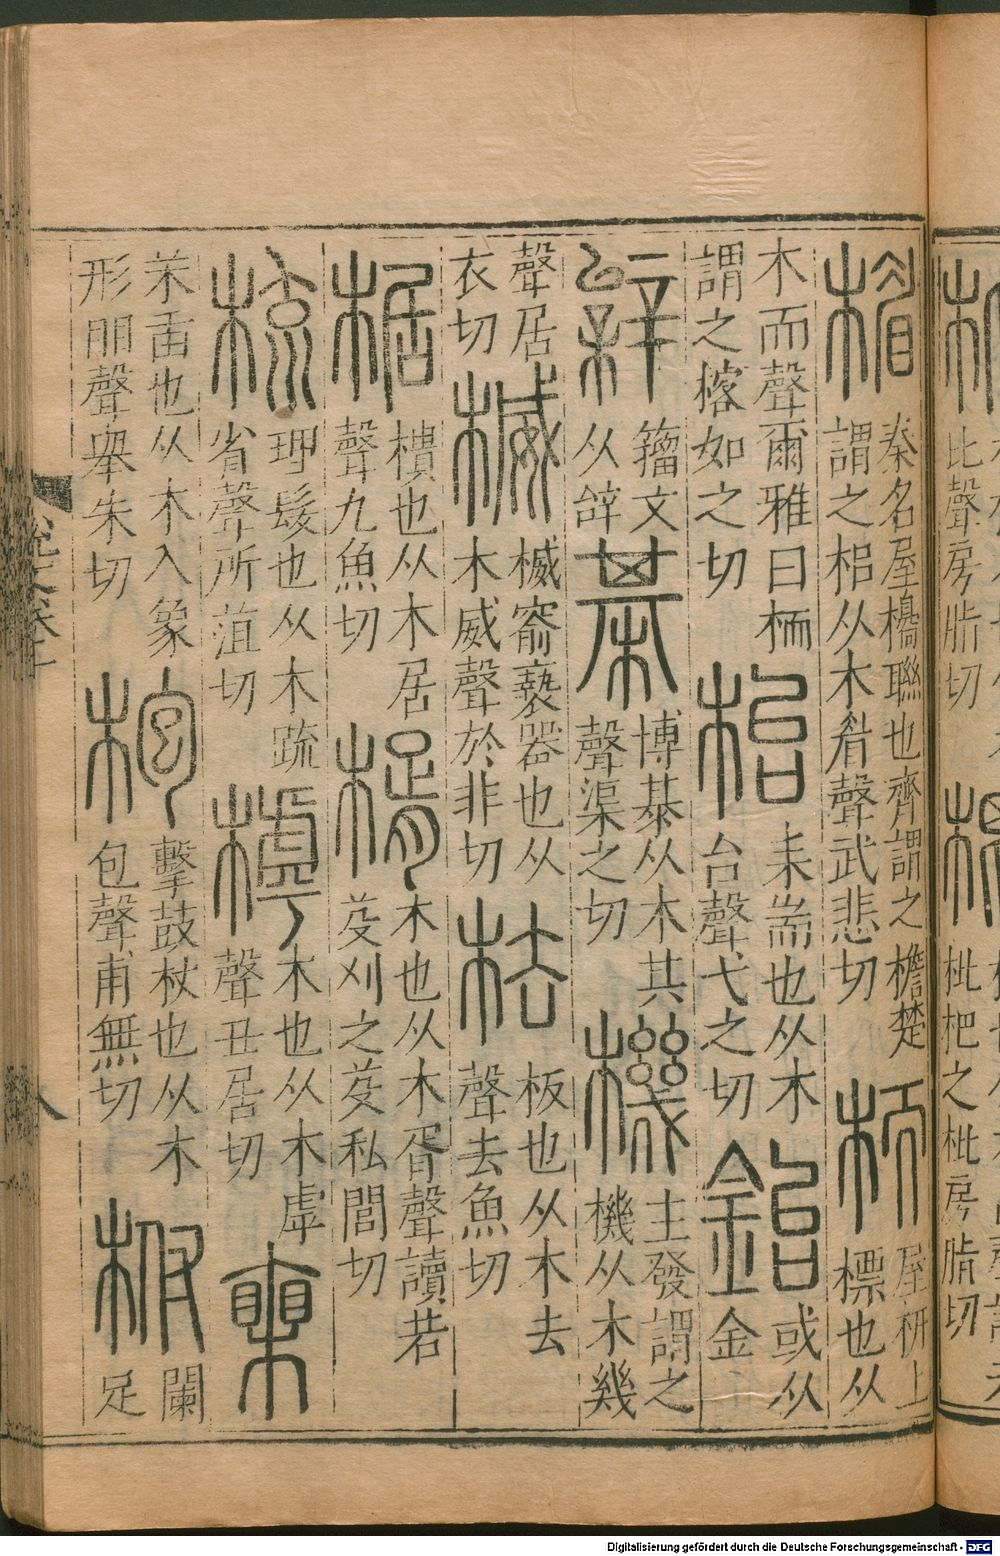 比聲房脂切
枇杷之枇房脂切
楣
秦名屋櫋聯也齊謂之檐楚
謂之梠从木眉聲武悲切
栭
屋枅上
標也从
木而聲爾雅曰栭
謂之㮞如之切
枱
耒耑也从木
台聲弋之切
鈶
或从
金
籒文
从辝
棊
博棊从木其
聲渠之切
機
主發謂之
機从木幾
聲居
衣切
楲
楲窬褻器也从
木威聲於非切
㭕
板也从木去
聲去魚切
椐
樻也从木居
聲九魚切
楈
木也从木胥聲讀若
芟刈之芟私閭切
梳
理髮也从木疏
省聲所葅切
樗
木也从木虖
聲丑居切
苿臿也从木入象
形䀠聲舉朱切
枹
擊鼓杖也从木
包聲甫無切
柎
闌
足
八
Digitalisierung gefördert durch die Deutsche Forschungsgemeinschaft - DFG